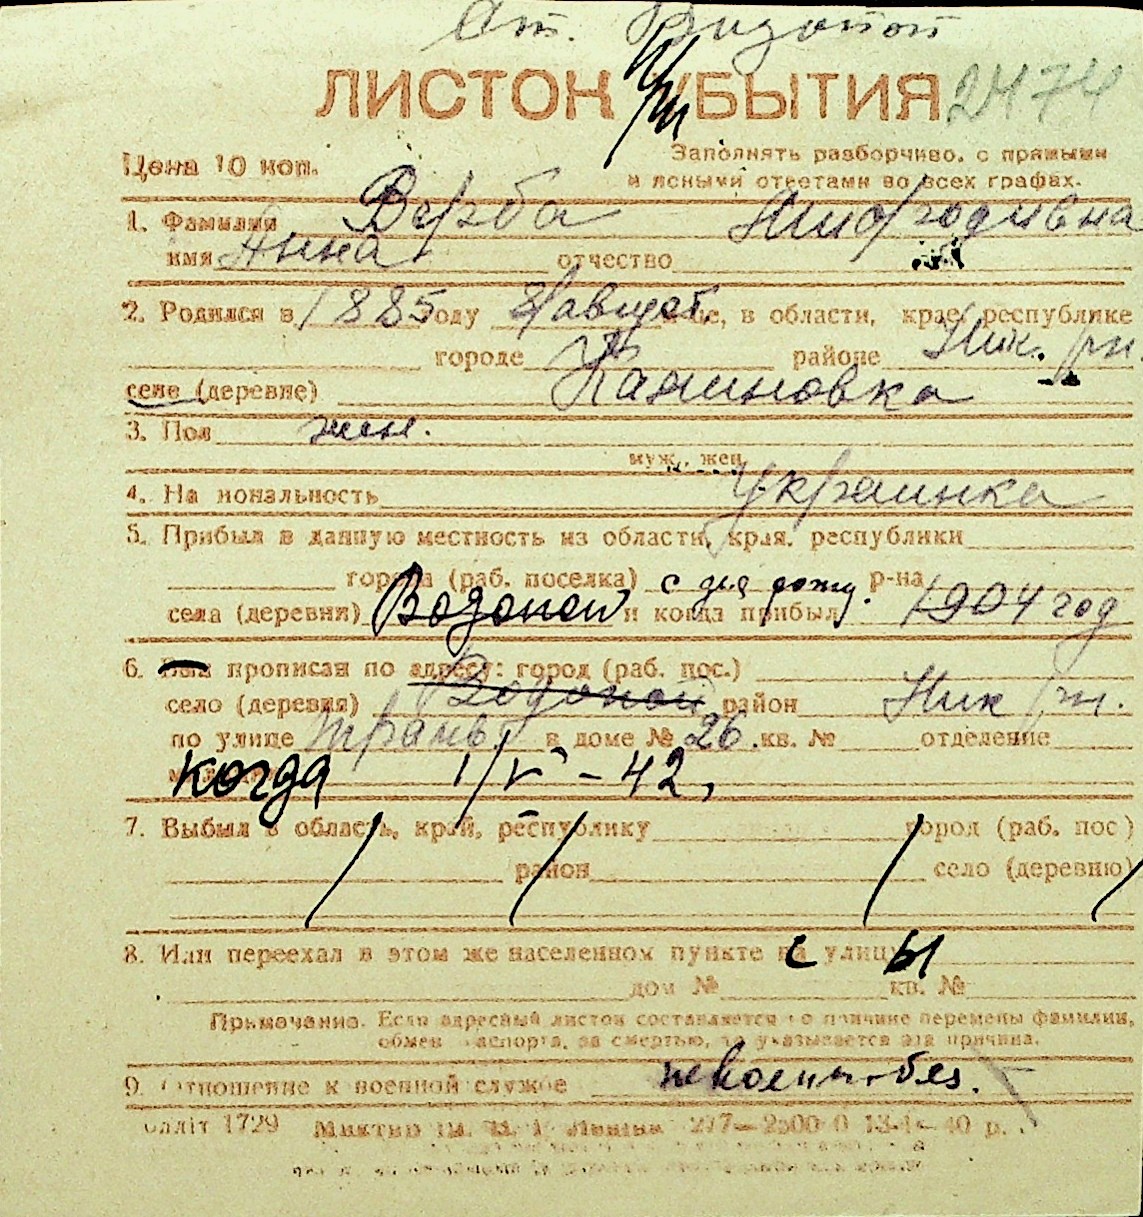 Ст. Водопой
ЛИСТОК УБЫТИЯ 2474
Цена 10 коп. Заполнять разборчиво, с прямыми
и ясными ответами во всех графах.
1. Фамилия Верба
имя Анна отчество
2. Родился в 1885 году 8/август. в области, крае, республике
городе районе Ник. рн
селе (деревне) Калиновка
3. Пол жен.
муж., жен.
4. Национальность Украинка
5. Прибыл в данную местность из области, края, республики
города (раб. поселка) с дня рожд. р-на
села (деревни) Водопой и когда прибыл 1904 год
6. Был прописан по адресу: город (раб. пос.)
село (деревня) Водопой район Ник рн.
по улице в доме № 26 кв. № отделение
когда 1/V-42,
7. Выбыл в область, край, республику город (раб. пос)
район село (деревню)
8. Или переехал в этом же населенном пункте на улицу с ы
дом № кв. №
Примечание. Если адресный листок составляется по причине перемены фамилии,
обмен паспорта, за смертью, то указывается эта причина.
9. Отношение к военной службе невоенн-обяз.
1729 40 р.